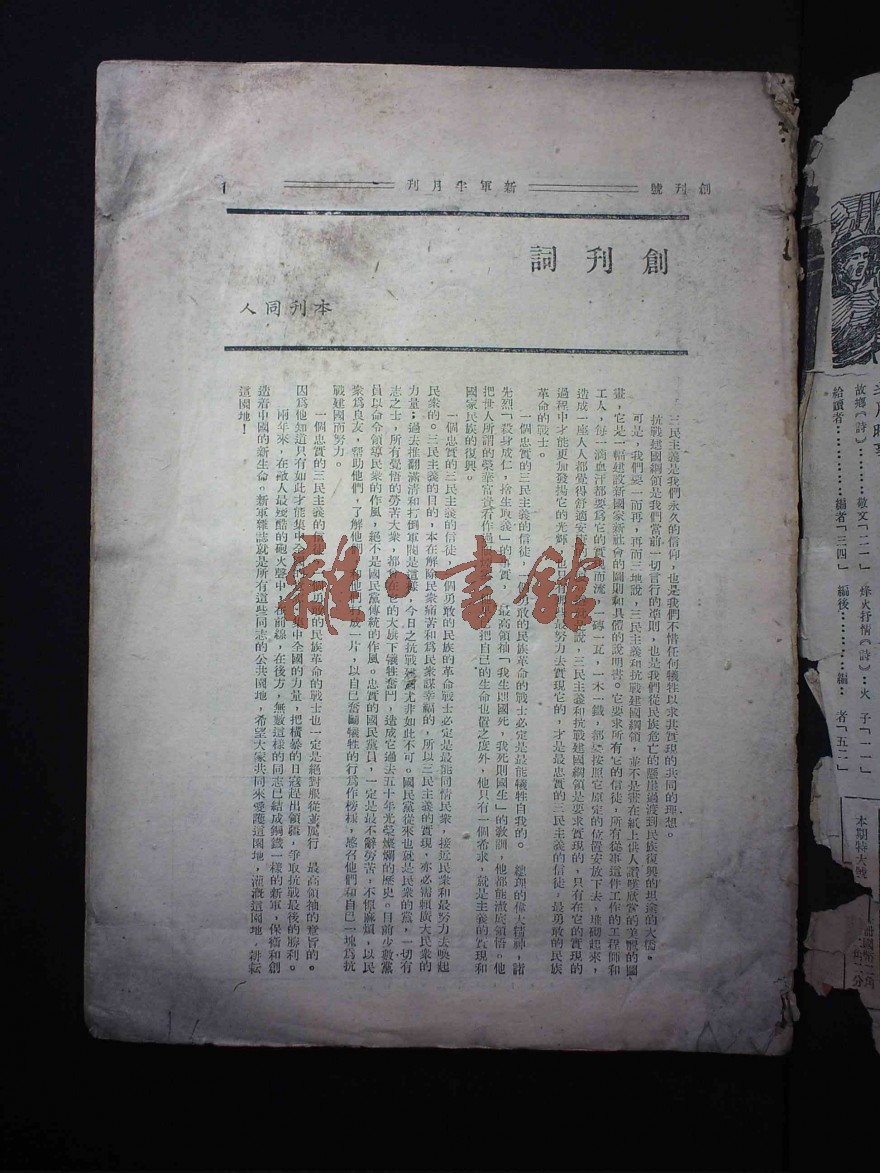 創刊號　新軍半月刊　1
創刊詞
本刊同人
三民主義是我們永久的信仰，也是我們不惜任何犧牲以求其實現的共同的理想。
抗戰建國綱領是我們當前一切言行的準則，也是我們從民族危亡的懸崖過渡到民族復興的坦途的大橋。
可是，我們要一而再，再而三地說，三民主義和抗戰建國綱領，並不是畫在紙上供人讚嘆欣賞的美麗的圖
畫，它是一幅建設新國家新社會的圖則和具體的說明書。它要求所有它的信徒，所有從事這件工作的工程師和
工人，每一滴血汗都要為它的實現而流，一磚一瓦，一木一鐵，都要按照它原定的位置安放下去，堆砌起來，
造成一座人人都覺得舒適安
說，三民主義和抗戰建國綱領是要求實現的，只有在它的實現的
過程中才能更加發揚它的光輝，也
最努力去實現它的，才是最忠實的三民主義的信徒，最勇敢的民族
革命的戰士。
一個忠實的三民主義的信徒，
勇敢的民族革命的戰士必定是最能犧牲自我的。　總理的偉大精神，諸
先烈「殺身成仁，捨生取義」的
最高領袖「我生則國死，我死則國生」的教訓，他都能澈底領悟。他
把世人所謂的榮華富貴
把自己的生命也置之度外，他只有一個希求，就是主義的實現和
國家民族的復興。
一個忠實的三民主義的信徒
個勇敢的民族的革命戰士必定是最能同情民衆，接近民衆和最努力去喚起
民衆的。三民主義的目的，本在解除民衆痛苦和為民衆謀幸福的，所以三民主義的實現，亦必需賴廣大民衆的
力量：過去推翻滿清和打倒軍閥是這樣，今日之抗戰建國尤非如此不可。國民黨從來也就是民衆的黨，一切有
志之士，所有覺悟的勞苦大衆，都
在它的大旗下犧牲奮鬥，造成它過去五十年光榮燦爛的歷史。目前少數黨
員以命令領導民衆的作風，絕不是國民黨傳統的作風。忠實的國民黨員，一定是最不辭勞苦，不憚麻煩，以民
衆為良友，幫助他們，了解他們，和他們
成一片，以自己奮鬥犧牲的行為作榜樣，感召他們和自己一塊為抗
戰建國而努力。
一個忠實的三民主義的
個勇敢的民族革命的戰士也一定是絕對服從並厲行　最高領袖的意旨的。
因為他知道只有如此才能集中全
集中全國的力量，把橫暴的日寇趕出領疆，爭取抗戰最後的勝利。
兩年來，在敵人最殘酷的砲火聲中，在前線，在後方，無數這樣的同志已結成鋼鐵一樣的新軍，保衛和創
造着中國的新生命。新軍雜誌就是所有這些同志的公共園地，希望大家共同來愛護這園地，灌溉這園地，耕耘
這園地！
雜·書館
故鄉（詩）………敬文「二一」　烽火抒情（詩）…火　子「一一」
給讀者……………編者「三四」　編後…………編　者「五二」
本期特大號